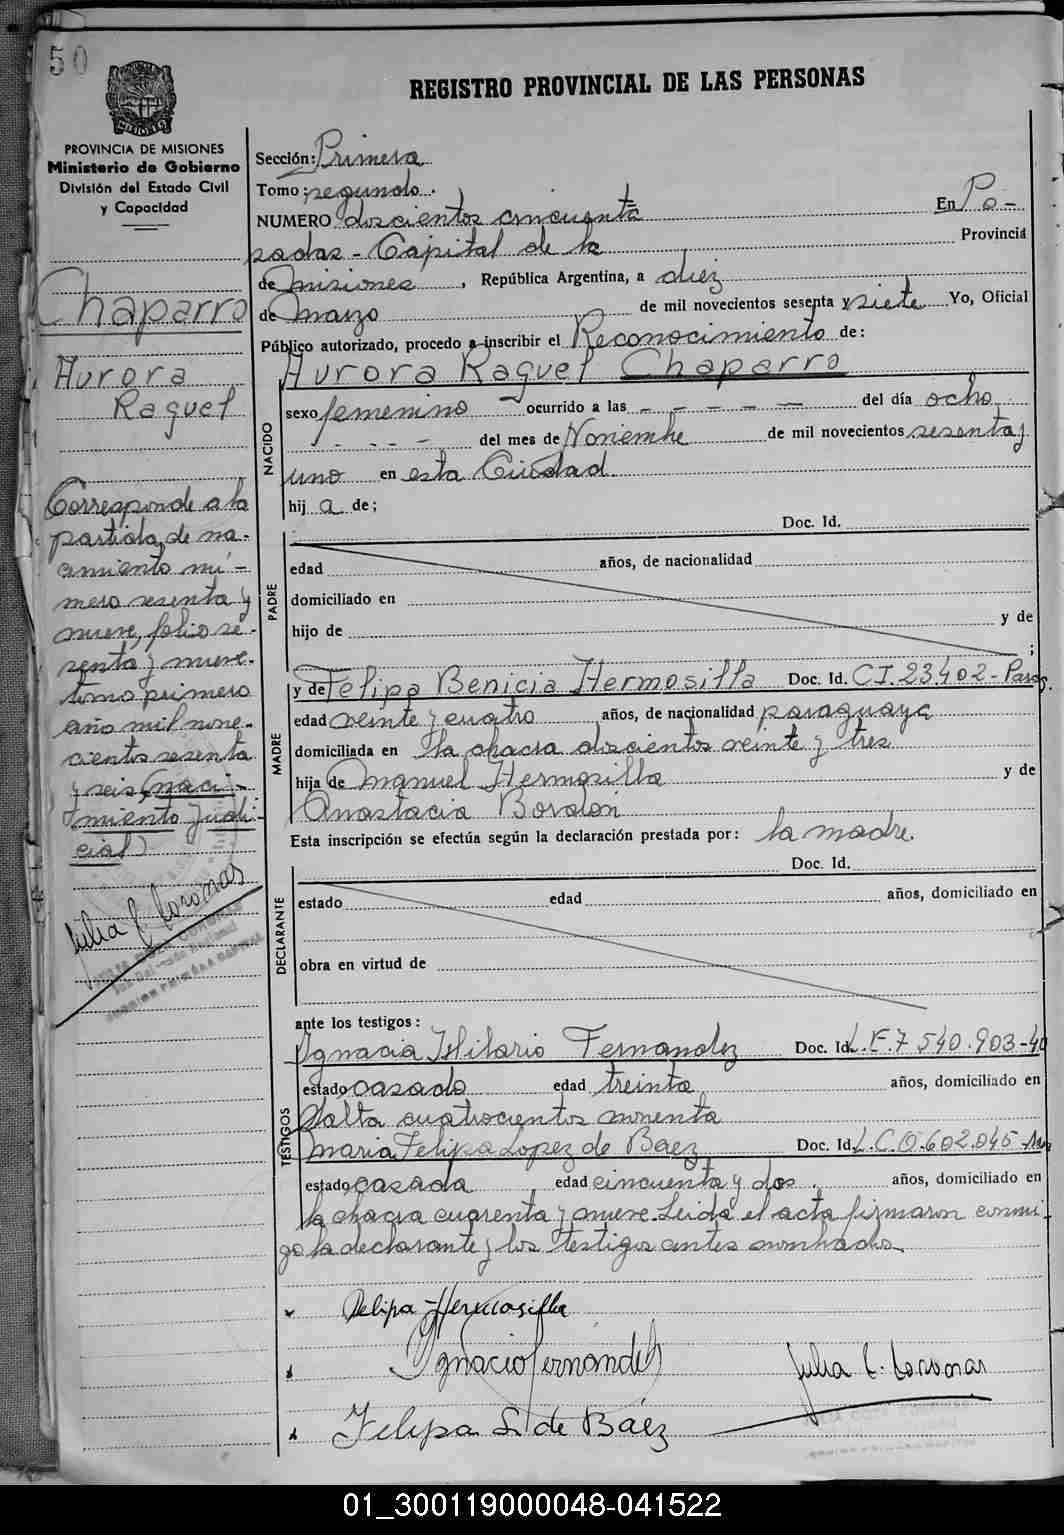 50
REGISTRO PROVINCIAL DE LAS PERSONAS
MISIONES
PROVINCIA DE MISIONES
Ministerio de Gobierno
División del Estado Civil
y Capacidad
Chaparro
Aurora
Raquel
Corresponde a la
partida, de na-
cimiento nú-
mero sesenta y
nueve, folio se-
senta y nueve.
tomo primero
año mil nove-
cientos sesenta
y seis (naci-
miento judi-
cial)
Julia C. Coronas
Sección: Primera
Tomo: segundo.
NUMERO doscientos cincuenta En Po-
sadas - Capital de la Provincia
de Misiones, República Argentina, a diez
de Marzo de mil novecientos sesenta y siete Yo, Oficial
Público autorizado, procedo a inscribir el Reconocimiento de:
Aurora Raquel Chaparro
NACIDO
sexo femenino ocurrido a las - - - - - del día ocho
- - - - del mes de Noviembre de mil novecientos sesenta y
uno en esta Ciudad
hij a de;
PADRE
Doc. Id.
edad años, de nacionalidad
domiciliado en
hijo de y de
;
MADRE
y de Felipa Benicia Hermosilla Doc. Id. C.I. 23.402 - Parag.
edad veinte y cuatro años, de nacionalidad paraguaya
domiciliada en la chacra doscientos veinte y tres
hija de Manuel Hermosilla y de
Anastacia Bordon
Esta inscripción se efectúa según la declaración prestada por: la madre.
DECLARANTE
Doc. Id.
estado edad años, domiciliado en
obra en virtud de
ante los testigos:
TESTIGOS
Ignacio Hilario Fernandez Doc. Id. L.E. 7.540.903-40
estado casado edad treinta años, domiciliado en
Salta cuatrocientos noventa
Maria Felipa Lopez de Baez Doc. Id. L.C. 0.602.045
estado casada edad cincuenta y dos. años, domiciliado en
la chacra cuarenta y nueve. Leida el acta firmaron conmi-
go la declarante y los testigos antes nombrados
Felipa Hermosilla
Ignacio Fernández
Julia C. Coronas
Felipa L. de Báez
01_300119000048-041522